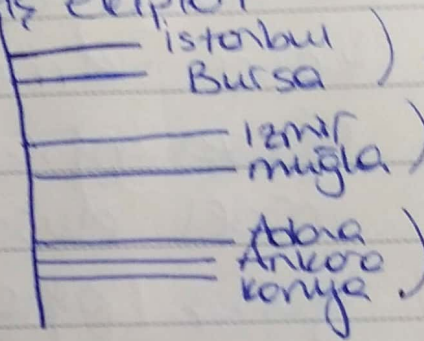 istanbul
Bursa
izmir
muğla
Adana
Ankara
konya.